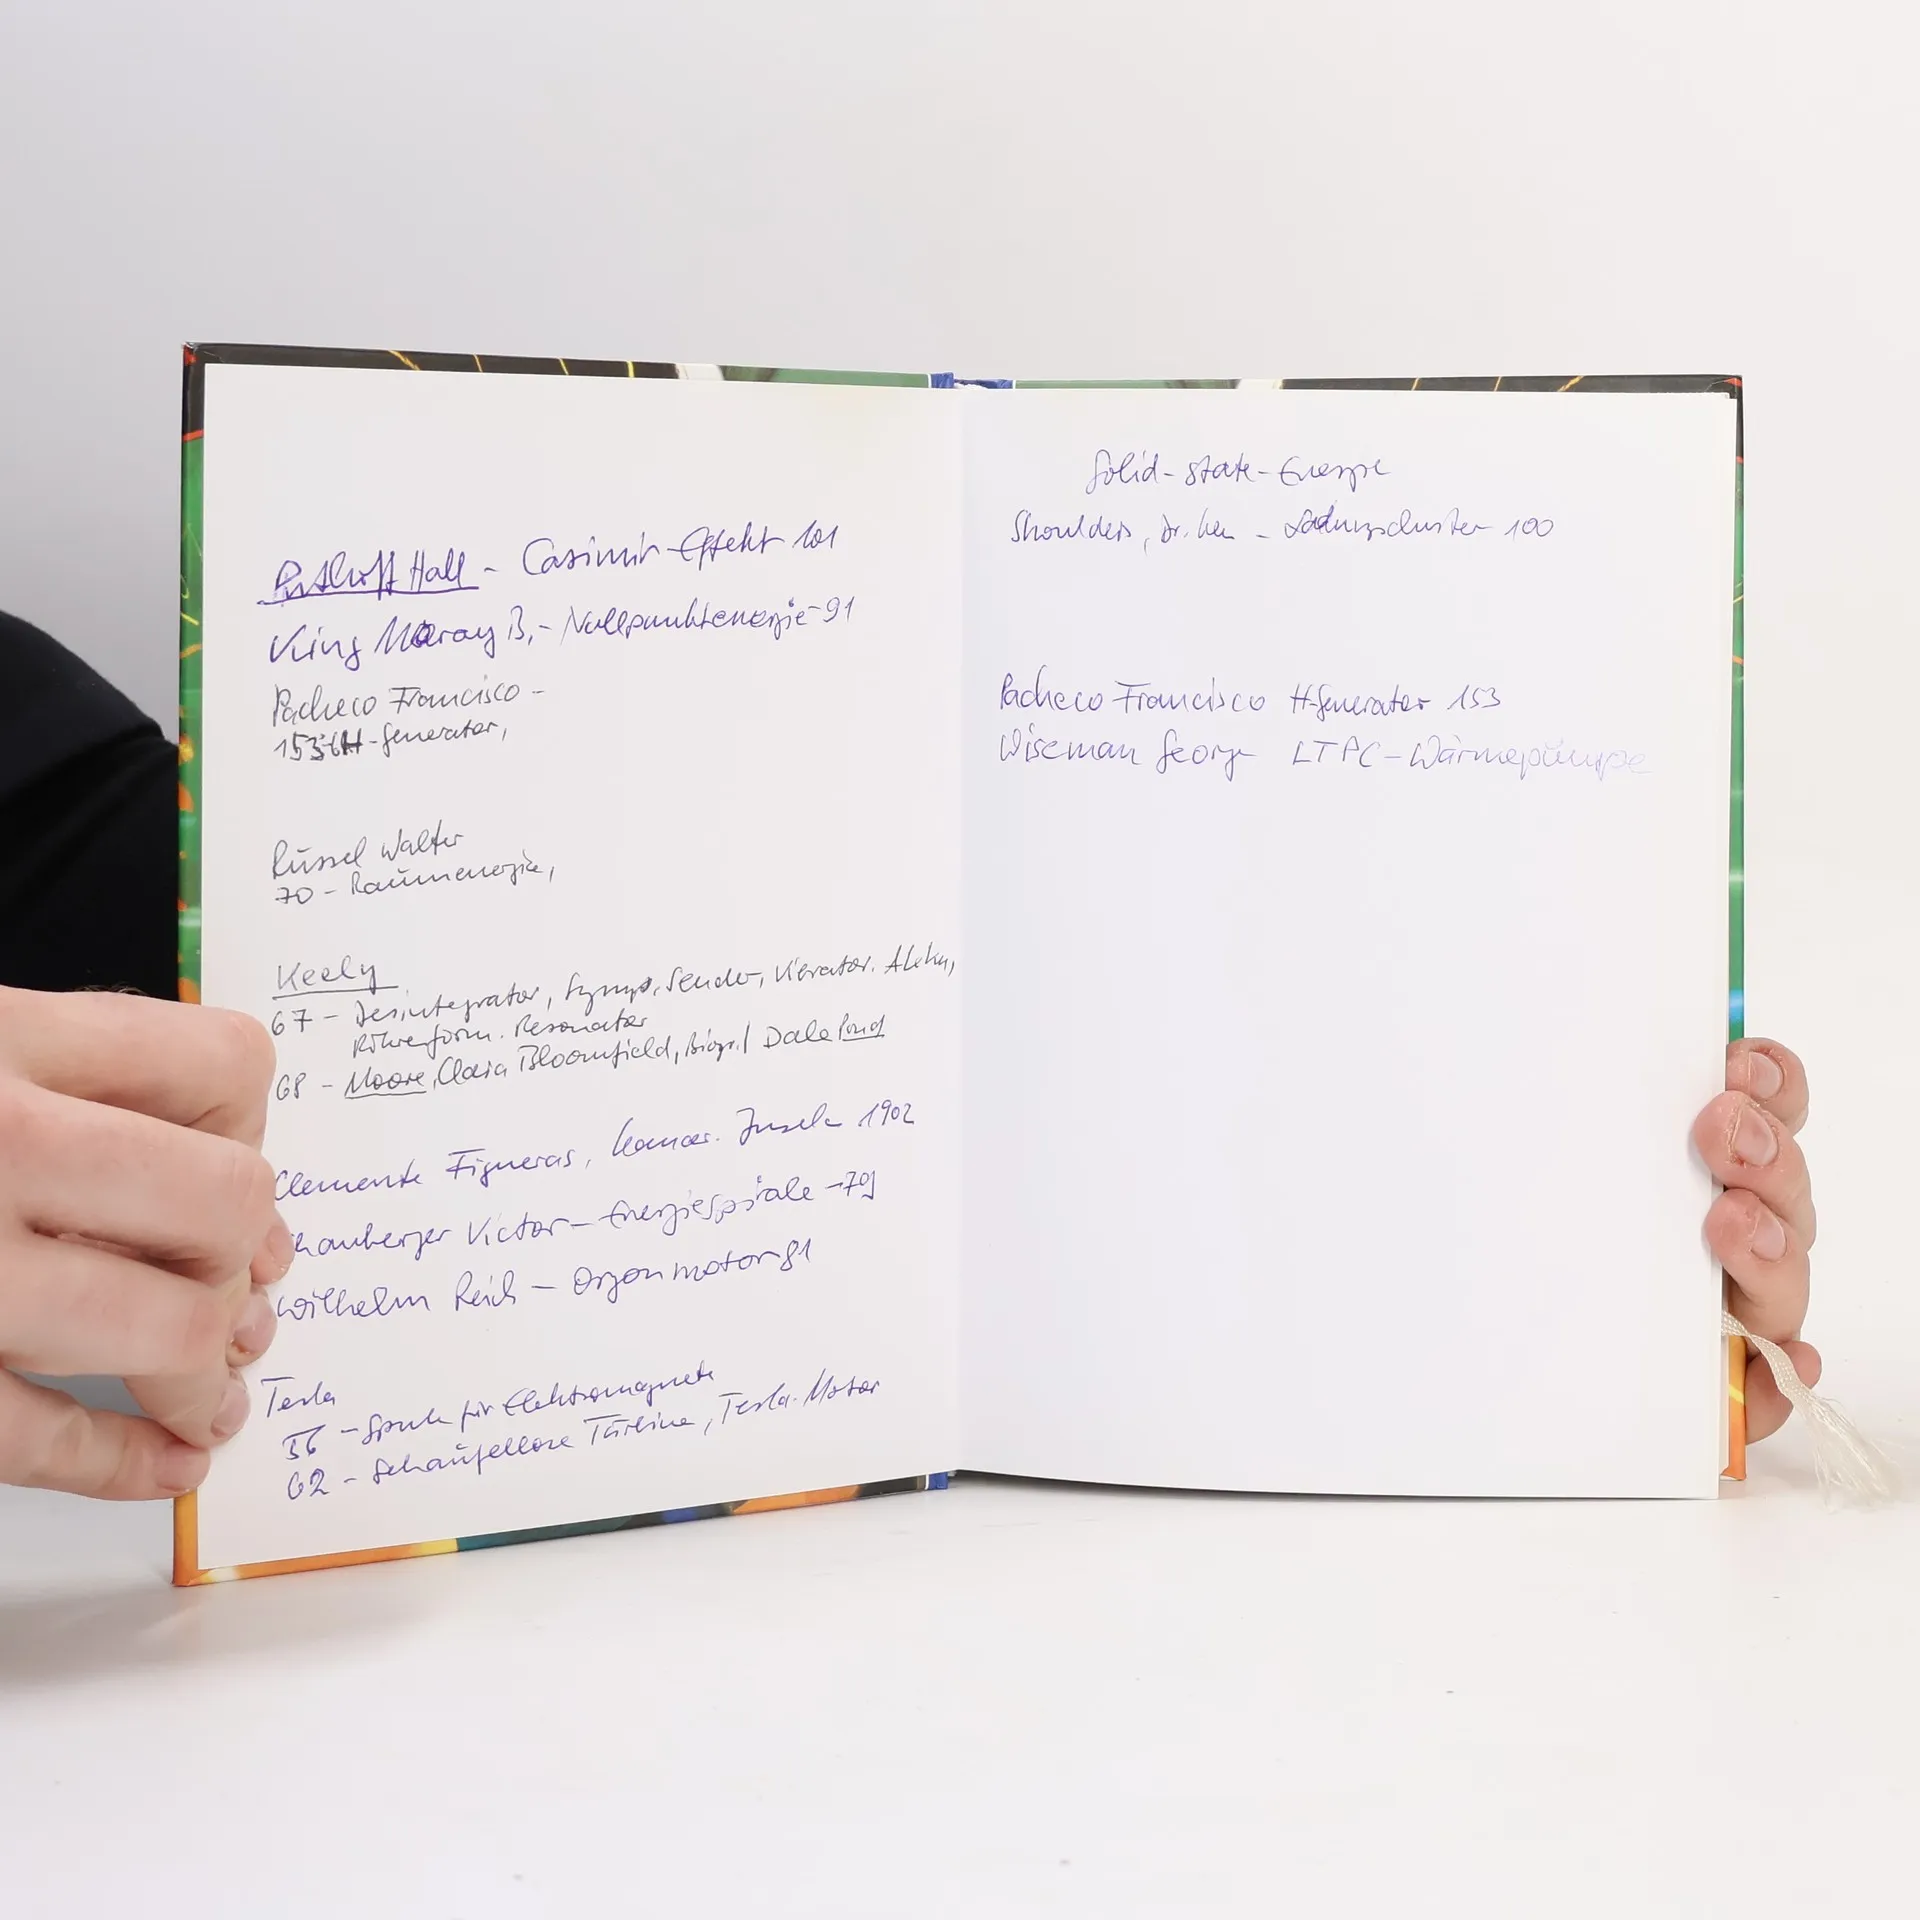 Puthoff Hall - Casimir-Effekt 101
King Moray B. - Nullpunktenergie - 91
Pacheco Francisco -
153 H-Generator,
Russel Walter
70 - Raumenergie,
Keely
67 - Desintegrator, Symp. Sender, Vibrator.
Röhrenförm. Resonator
68 - Moore, Clara Bloomfield, Biogr. / Dale Pond
Clemente Figueras, Kanar. Inseln 1902
hauberger Victor - Energiespirale - 79
Wilhelm Reich - Orgonmotor 81
Tesla
56 - Spule für Elektromagnete
62 - Schaufellose Turbine, Tesla-Motor
Solid-state-Energie
Shoulders, Dr. Ken - Ladungscluster 100
Pacheco Francisco H-Generator 153
Wiseman George LTPC-Wärmepumpe